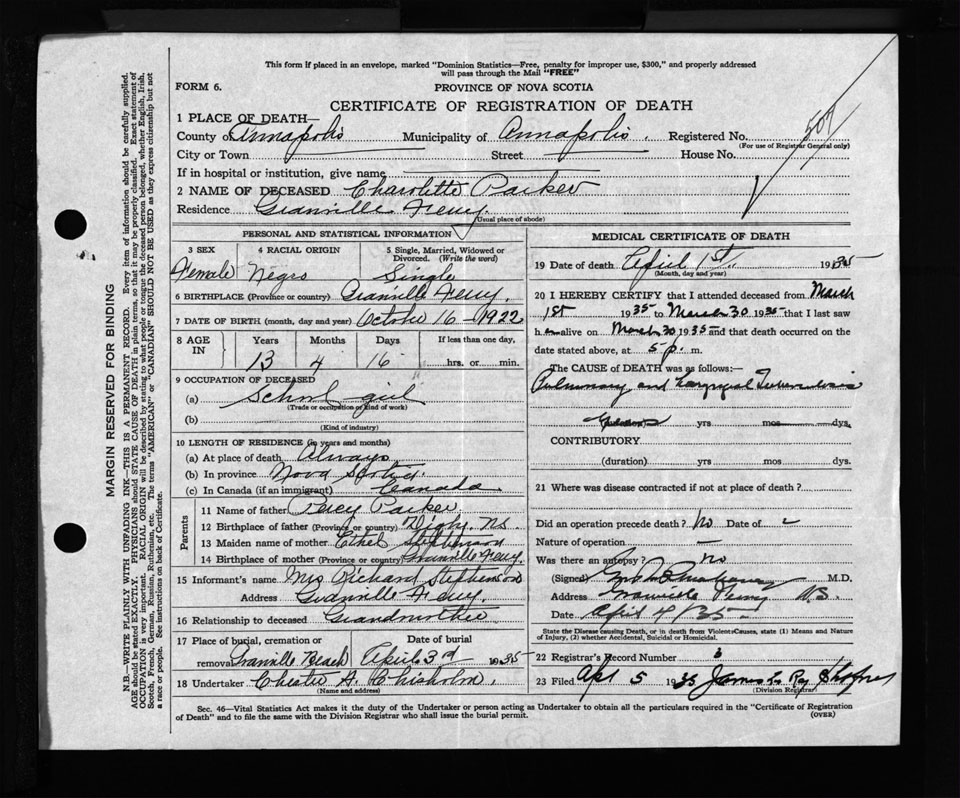 This form if placed in an envelope, marked "Dominion Statistics—Free, penalty for improper use, $300," and properly addressed
will pass through the Mail "FREE"
FORM 6.
PROVINCE OF NOVA SCOTIA
CERTIFICATE OF REGISTRATION OF DEATH
1 PLACE OF DEATH—
County of Annapolis Municipality of Annapolis. Registered No. 507
(For use of Registrar General only)
City or Town Street House No.
If in hospital or institution, give name
2 NAME OF DECEASED Charolette Parker
Residence Granville Ferry.
(Usual place of abode)
PERSONAL AND STATISTICAL INFORMATION
3 SEX 4 RACIAL ORIGIN 5 Single, Married, Widowed or
Divorced. (Write the word)
Female Negro Single
6 BIRTHPLACE (Province or country) Granville Ferry.
7 DATE OF BIRTH (month, day and year) October 16 - 1922
8 AGE IN Years Months Days If less than one day,
13 4 16 hrs. or min.
9 OCCUPATION OF DECEASED
(a) School girl
(Trade or occupation or kind of work)
(b)
(Kind of industry)
10 LENGTH OF RESIDENCE (in years and months)
(a) At place of death Always
(b) In province Nova Scotia.
(c) In Canada (if an immigrant) Canada
Parents
11 Name of father Percy Parker
12 Birthplace of father (Province or country) Digby. N.S.
13 Maiden name of mother Ethel Stephenson
14 Birthplace of mother (Province or country) Granville Ferry.
15 Informant's name Mrs Richard Stephenson
Address Granville Ferry
16 Relationship to deceased Grandmother
17 Place of burial, cremation or Date of burial
removal Granville Beach April 3rd 1935
18 Undertaker Chester A. Chisholm.
(Name and address)
MEDICAL CERTIFICATE OF DEATH
19 Date of death April 1st. 1935
(Month, day and year)
20 I HEREBY CERTIFY that I attended deceased from March
1st 1935 to March 30 1935 that I last saw
her alive on March 30 1935 and that death occurred on
date stated above, at 5 p. m.
The CAUSE of DEATH was as follows:
Pulmonary and Laryngeal Tuberculosis
yrs mos dys.
CONTRIBUTORY
(duration) yrs mos dys.
21 Where was disease contracted if not at place of death?
Did an operation precede death? No Date of
Nature of operation —
Was there an autopsy? No
(Signed) M.D.
Address Granville Ferry N.S.
Date April 4/35
State the Disease causing Death, or in death from Violent Causes, state (1) Means and Nature
of Injury, (2) whether Accidental, Suicidal or Homicidal.
22 Registrar's Record Number 3
23 Filed Apr 5 1935 James
(Division Registrar)
Sec. 46—Vital Statistics Act makes it the duty of the Undertaker or person acting as Undertaker to obtain all the particulars required in the "Certificate of Registration
of Death" and to file the same with the Division Registrar who shall issue the burial permit.
(OVER)
MARGIN RESERVED FOR BINDING
N.B.—WRITE PLAINLY WITH UNFADING INK—THIS IS A PERMANENT RECORD. Every item of information should be carefully supplied.
AGE should be stated EXACTLY. PHYSICIANS should STATE CAUSE OF DEATH in plain terms, so that it may be properly classified. Exact statement of
OCCUPATION is very important. RACIAL ORIGIN will be described by stating to what people or tongue the deceased person belonged, whether English, Irish,
Scotch, French, German, Russian, Ruthenian, etc. The terms "AMERICAN" or "CANADIAN" SHOULD NOT BE USED as they express citizenship but not
a race or people. See instructions on back of Certificate.